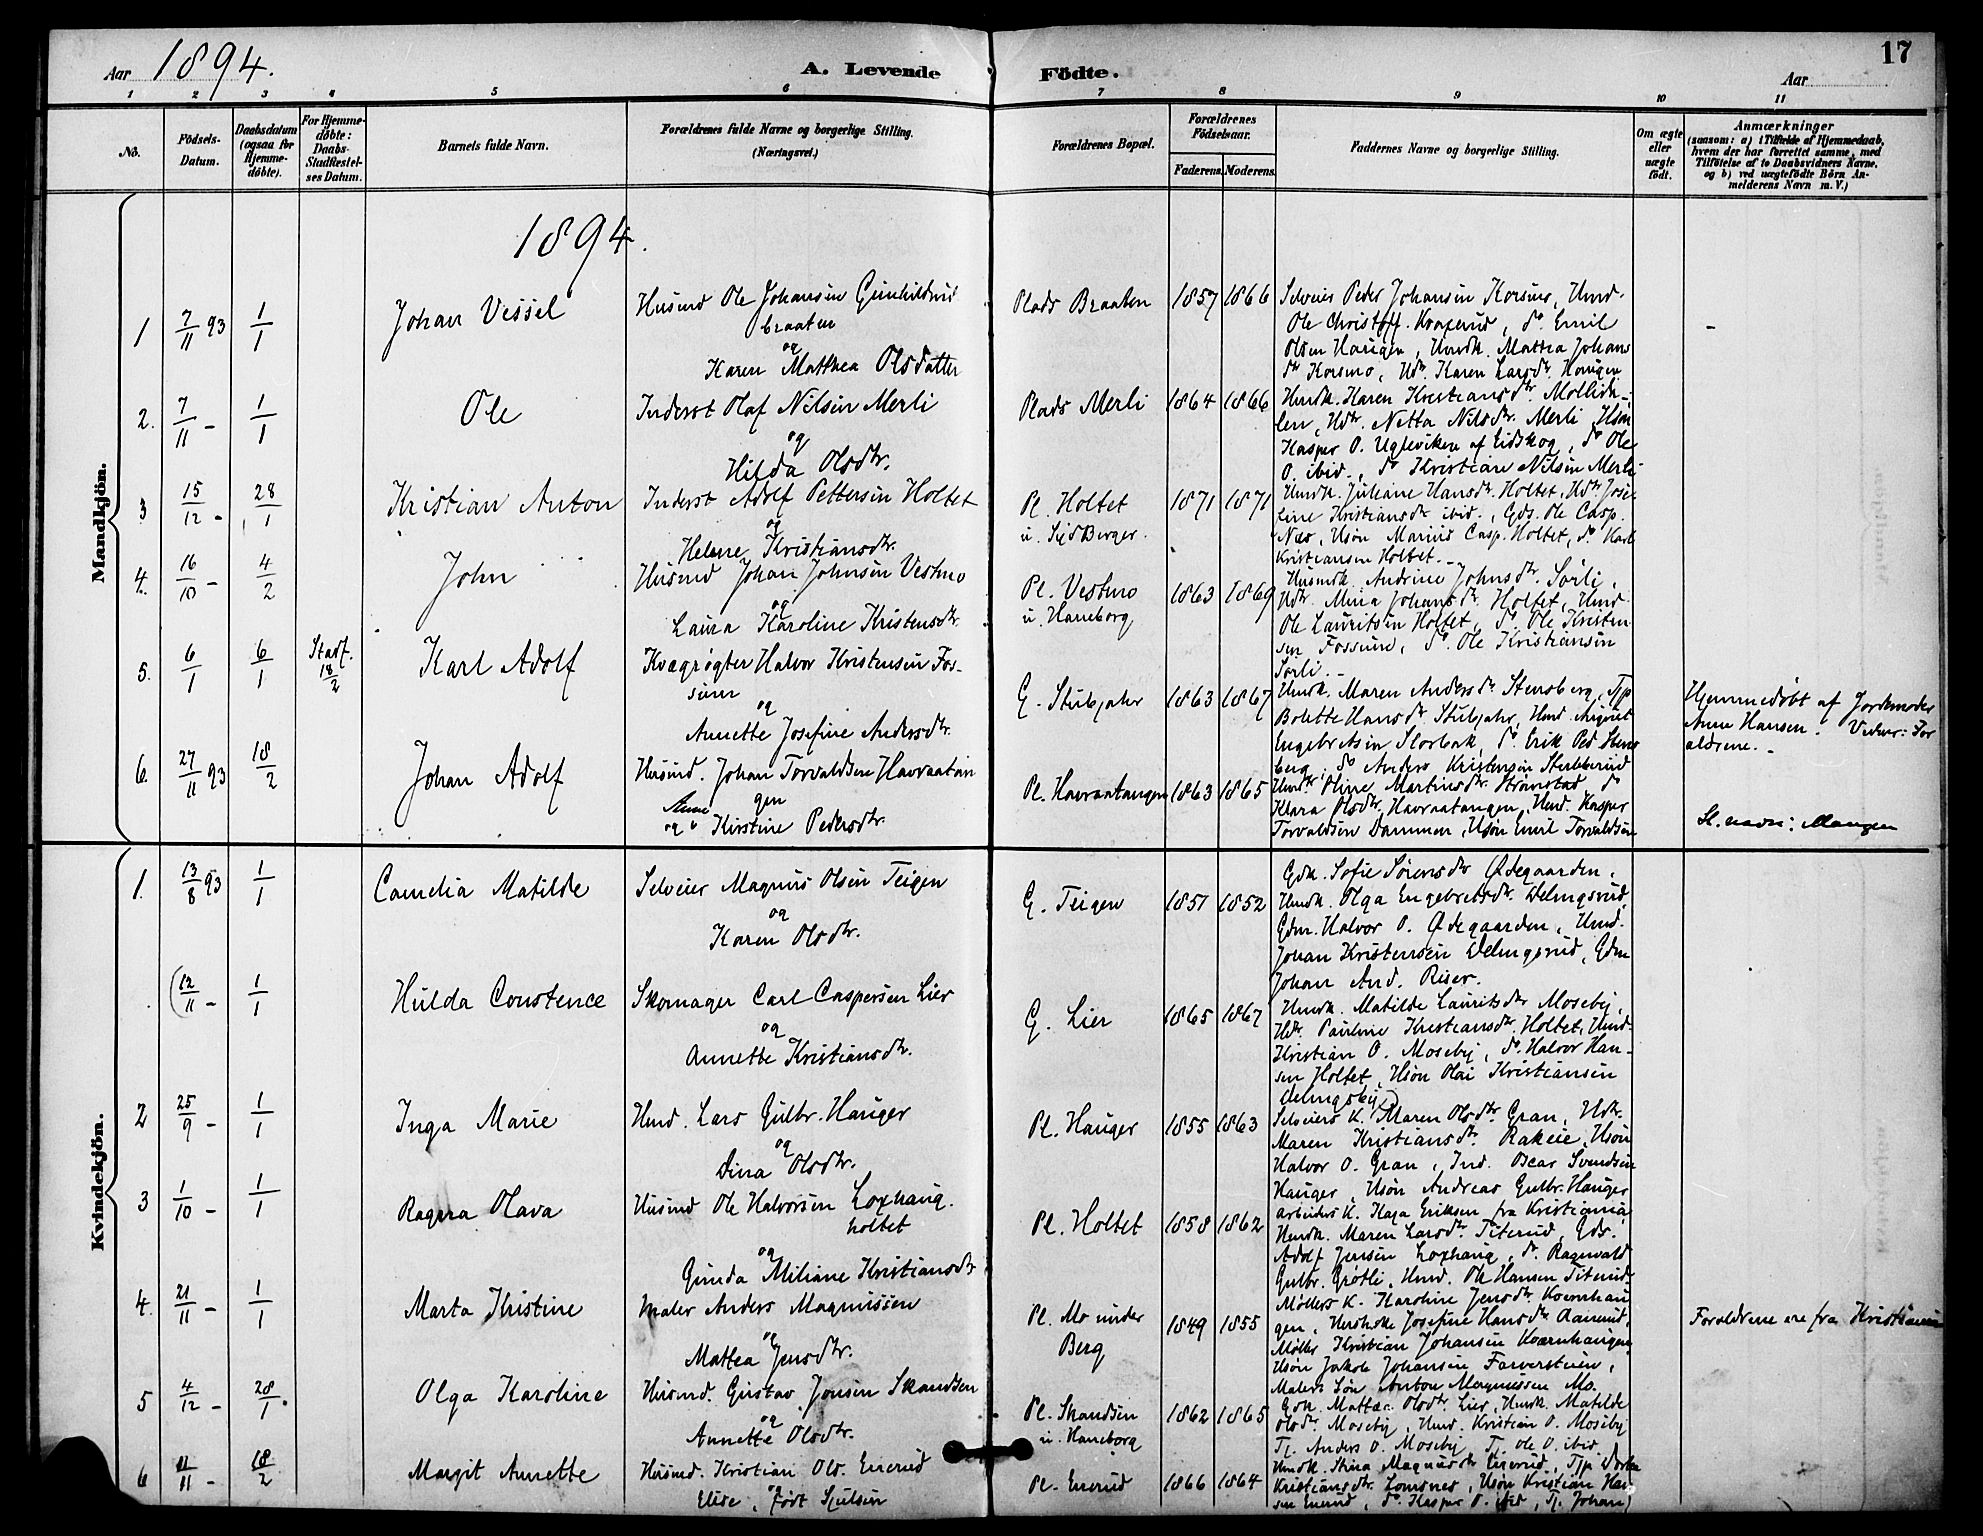 Aar 1894.
A. Levende Födte.
Aar
17
1 2 3 4 5 6 7 8 9 10 11
No.
Födsels-Datum.
Daabsdatum (ogsaa for Hjemme-døbte).
For Hjemme-döbte: Daabs-Stadfæstel-ses Datum.
Barnets fulde Navn.
Forældrenes fulde Navne og borgerlige Stilling. (Næringsvei.)
Forældrenes Bopæl.
Forældrenes Födselsaar.
Faderens. Moderens.
Faddernes Navne og borgerlige Stilling.
Om ægte eller uægte födt.
Anmærkninger
(saasom: a) i Tilfælde af Hjemmedaab, hvem der har forrettet samme, med Tilföielse af to Daabsvidners Navne, og b) ved uægtefödte Börn An-melderens Navn m. V.)
1894.
Mandkjön.
1 7/11 93 1/1 Johan Vessel
Husmd Ole Johansen Gunhildrud
braaten
og
Karen Matthea Olsdatter
Plads Braaten 1857 1866
Selveier Peder Johansen Korsmo, Umd.
Olsen Haugen, Umdk. Mattea Johans
dtr Korsmo, Udtr. Karen Larsdtr. Haugen
2. 7/11 – 1/1 Ole
Inderst Olaf Nilsen Merli
og
Hilda Olsdtr.
Plads Merli 1864 1866
len, Udtr. Netta Nilsdtr. Merli, Usøn
Kasper O. Uglevиken af Eidskog, do Ole
O. ibid., do Kristian Nilsen Merli
3 15/12 – 28/1 Kristian Anton
Inderst Adolf Pettersen Holtet
og
Helene Kristiansdtr.
Pl. Holtet 1871 1871
Umdk. Juliane Hansdtr. Holtet, Udtr. Jose-
fine Kristiansdtr ibid., Gds. Ole Casp.
Næs, Usøn Marius Casp. Holtet, do Karl
Kristiansen Holtet.
4. 16/10 – 4/2 John
Husmd Johan Johnsen Vestmo
og
Laura Karoline Kristensdtr.
Pl. Vestmo
u. Haneborg 1863 1869
Husmdk. Andrine Johnsdtr. Sørli,
Udtr. Mina Johansdtr. Holtet, Umd.
Ole Lauritsen Holtet, do. Ole Kristen
sen Fossum, do. Ole Kristiansen
Sørli.
5. 6/1 6/1 Stadf. 18/2 Karl Adolf
Kvægrøgter Halvor Kristensen Fos-
sum
og
Annette Josefine Andersdtr.
G. Stubjahr 1863 1867
Umdk. Maren Andersdtr. Stensberg, Tjp
Bolette Hansdtr. Stubjahr, Umd. August
Engebretsen Slorbak, do. Erik Ped. Stens
berg, do Anders Kristensen Stubberud
Hjemmedøbt af Jordemoder
Anne Hansen. Vidner: For
ældrene.
6. 27/11 93 18/2 Johan Adolf
Husmd. Johan Torvaldsen Havraatan
gen
og Anne Kirstine Pedersdtr.
Pl. Havraatangen 1863 1865
Umdk. Oline Martinsdtr. Strømstad do
Klara Olsdtr. Havraatangen, Umd. Kasper
Torvaldsen Dammen, Usøn Emil Torvaldsen
Sl. navn: Mangen
Kvindekjön.
1. 13/8 93 1/1 Camelia Matilde
Selveier Magnus Olsen Teigen
og
Karen Olsdtr.
G. Teigen 1851 1852
Gdk. Sofie Sørensdtr Ødegaarden,
Umdk. Olga Engebretsdtr. Delingsrud,
Gdm. Halvor O. Ødegaarden, Umd.
Johan Kristensen Delingsrud, Gdm
Johan And. Riser.
(12/11 – 1/1 Hulda Constence
Skomager Carl Caspersen Lier
og
Annette Kristiansdtr.
G. Lier 1865 1867
Umdk. Matilde Lauritsdtr Moseby,
Udtr. Pauline Kristiansdtr. Holtet, Umd.
Kristian O. Moseby, do. Halvor Han-
sen Holtet, Usøn Olai Kristiansen
Delingsby)
2 25/9 – 1/1 Inga Marie
Umd. Lars Gulbr. Hauger
og
Dina Olsdtr.
Pl. Hauger 1855 1863
Selveiers K. Maren Olsdtr. Gran, Udtr.
Maren Kristiansdtr. Rakeie, Usøn
Halvor O. Gran, Ind. Oscar Svendsen
Hauger, Usøn Andreas Gulbr. Hauger
3 1/10 – 1/1 Ragna Olava
Husmd Ole Halvorsen Loxhaug.
holtet
og
Gunda Miliane Kristiansdtr
Pl. Holtet 1858 1862
Arbeiders K. Kaja Eriksen fra Kristiania
Umdk. Maren Larsdtr. Titerud, Gds.
Adolf Jensen Loxhaug, do. Ragnvald
Gulbr. Grøtli, Umd. Ole Hansen Titerud.
4. 21/11 – 1/1 Marta Kristine
Maler Anders Magnussen
og
Mattea Jensdtr.
Pl. Mo under
Berg 1849 1855
Møllers K. Karoline Jensdtr. Kvernhau
gen, Josefine Hansdtr Aanerud,
Møller Kristian Johansen Kvarnhaugen,
Usøn Jakob Johansen Farversteien,
Malers Søn Anton Magnussen Mo.
Forældrene ere fra Kristiania
5 4/12 – 28/1. Olga Karoline
Husmd. Gustav Jonsen Skandsen
og
Annette Olsdtr.
Pl. Skandsen
u. Haneborg 1862 1865
Gdk. Mattea Olsdtr. Lier, Umdk. Matilde
Olsdtr. Moseby, Umd. Kristian O. Moseby
Tj. Anders O. Moseby, Tj. Ole O. ibid.
6 11/11 – 18/2 Margit Annette
Husmd. Kristian Ols. Enerud
og
Elise, født Sjulsen
Pl. Enerud 1866 1864
Umdk. Stina Magnusdtr Enerud, Tjp.
Kristiansdtr. Lomsnes, Usøn Kristian Han
sen Enerud, do. Kasper O. ibid, Tj. Johan